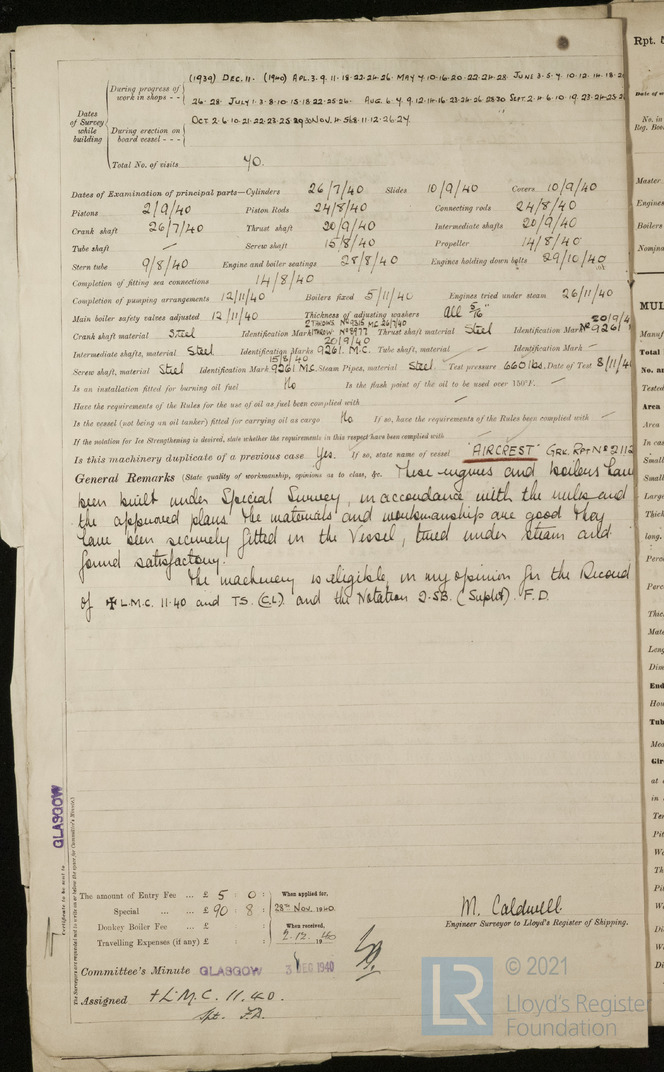 Rpt.
(1939) DEC. 11. (1940) APL. 3. 9. 11. 18. 22. 24. 26. MAY 7. 10. 16. 20. 22. 24. 28. JUNE 3. 5. 7. 10. 12. 14. 18.
During progress of work in shops - -
26. 28. JULY 1. 3. 8. 10. 15. 18. 22. 25. 26. AUG. 6. 7. 9. 12. 14. 16. 23. 24. 26. 28 30 SEPT. 2. 4. 6. 10. 19. 23. 24. 25
Dates of Survey while building
During erection on board vessel - - -
OCT 2. 6. 10. 21. 22. 23. 25. 29 30 NOV. 4. 5. 8. 11. 12. 26. 27.
Total No. of visits 70.
Dates of Examination of principal parts—Cylinders 26/7/40 Slides 10/9/40 Covers 10/9/40
Pistons 2/9/40 Piston Rods 24/8/40 Connecting rods 24/8/40
Crank shaft 26/7/40 Thrust shaft 20/9/40 Intermediate shafts 20/9/40
Tube shaft — Screw shaft 15/8/40 Propeller 14/8/40
Stern tube 9/8/40 Engine and boiler seatings 28/8/40 Engines holding down bolts 29/10/40
Completion of fitting sea connections 14/8/40
Completion of pumping arrangements 12/11/40 Boilers fixed 5/11/40 Engines tried under steam 26/11/40
Main boiler safety valves adjusted 12/11/40 Thickness of adjusting washers All 5/16"
Crank shaft material Steel Identification Mark 2 THROWS Nº 9315 M.C. 26/7/40 1 THROW Nº 8977 Thrust shaft material Steel Identification Mark Nº 9261 20/9/4
Intermediate shafts, material Steel Identification Marks 20/9/40 9261. M.C. Tube shaft, material — Identification Mark —
Screw shaft, material Steel Identification Mark 15/8/40 9261 M.C. Steam Pipes, material Steel. Test pressure 660 lbs. Date of Test 8/11/4
Is an installation fitted for burning oil fuel No Is the flash point of the oil to be used over 150°F. —
Have the requirements of the Rules for the use of oil as fuel been complied with —
Is the vessel (not being an oil tanker) fitted for carrying oil as cargo No If so, have the requirements of the Rules been complied with —
If the notation for Ice Strengthening is desired, state whether the requirements in this respect have been complied with —
Is this machinery duplicate of a previous case Yes. If so, state name of vessel "AIRCREST" GRK. RPT Nº 2112
General Remarks (State quality of workmanship, opinions as to class, &c. These engines and boilers have
been built under Special Survey, in accordance with the rules and
the approved plans. The materials and workmanship are good They
have been securely fitted in the Vessel, tried under steam and
found satisfactory.
The machinery is eligible, in my opinion for the Record
of ✠ L.M.C. 11.40 and TS. (C.L). and the Notation 2.SB. (Suplt). F.D.
GLASGOW
Certificate to be sent to
The Surveyors are requested not to write on or below the space for Committee's Minute.
The amount of Entry Fee ... £ 5 : 0 : When applied for,
Special ... ... £ 90 : 8 : 28th Nov. 1940.
Donkey Boiler Fee ... £ : : When received,
Travelling Expenses (if any) £ : : 2.12.1940
M. Caldwell
Engineer Surveyor to Lloyd's Register of Shipping.
Committee's Minute GLASGOW 3 DEC 1940
Assigned + L.M.C. 11.40.
Spt. F.D.
LR © 2021
Lloyd's Register
Foundation